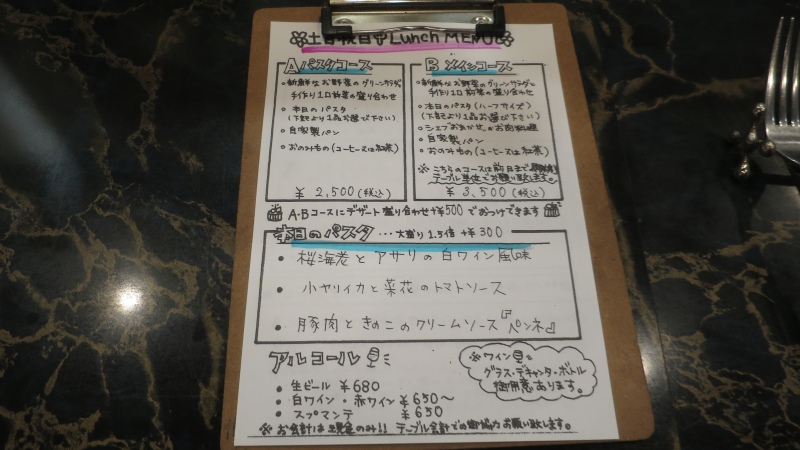 土日祝日 Lunch MENU
Aパスタコース
・新鮮なお野菜のグリーンサラダ
手作り1口前菜の盛り合わせ
・本日のパスタ
(下記より1品お選び下さい)
・自家製パン
・おのみもの(コーヒーor紅茶)
¥2,500(税込)
Bメインコース
・新鮮なお野菜のグリーンサラダと
手作り1口前菜の盛り合わせ
・本日のパスタ(ハーフサイズ)
(下記より1品お選び下さい)
・シェフ"おまかせ"のお肉料理
・自家製パン
・おのみもの(コーヒーor紅茶)
※こちらのコースは前日まで
テーブル単位でお願い致します。
¥3,500(税込)
A・Bコースにデザート盛り合わせ+¥500でおつけできます
本日のパスタ…大盛り1.5倍+¥300
• 桜海老とアサリの白ワイン風味
• 小ヤリイカと菜花のトマトソース
• 豚肉ときのこのクリームソース『ペンネ』
アルコール
• 生ビール ¥680
• 白ワイン・赤ワイン ¥650〜
• スプマンテ ¥650
※ワイン
グラス・デキャンタ・ボトル
御用意あります。
※お会計は現金のみ!! テーブル会計での御協力お願い致します。